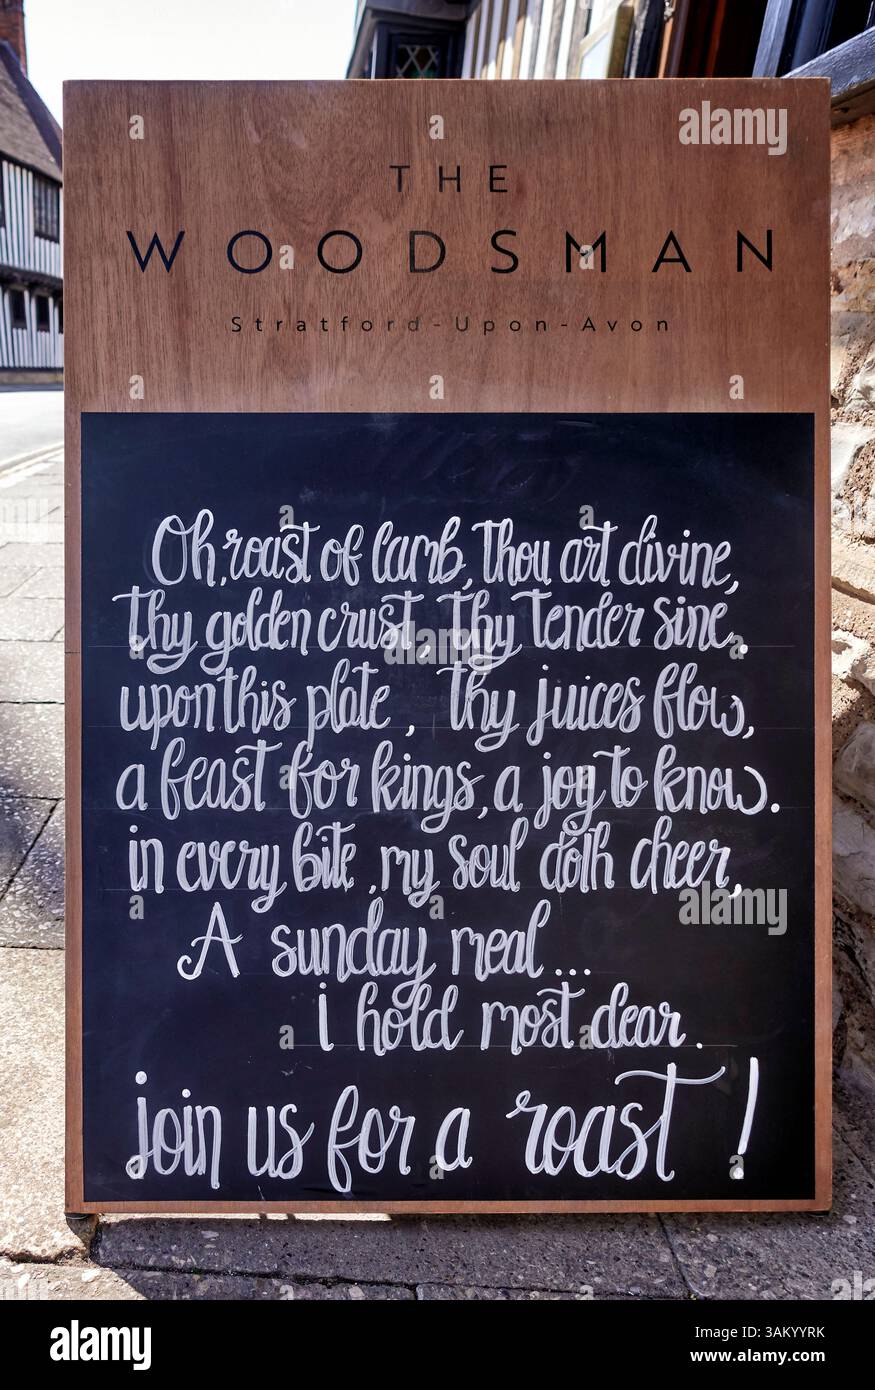 THE
WOODSMAN
Stratford-Upon-Avon
Oh, roast of lamb, thou art divine,
thy golden crust, thy tender sine.
upon this plate, thy juices flow,
a feast for kings, a joy to know.
in every bite, my soul doth cheer,
A sunday meal...
i hold most dear.
join us for a roast!
alamy
alamy
alamy
alamy
alamy
Image ID: 3AKYYRK
www.alamy.com